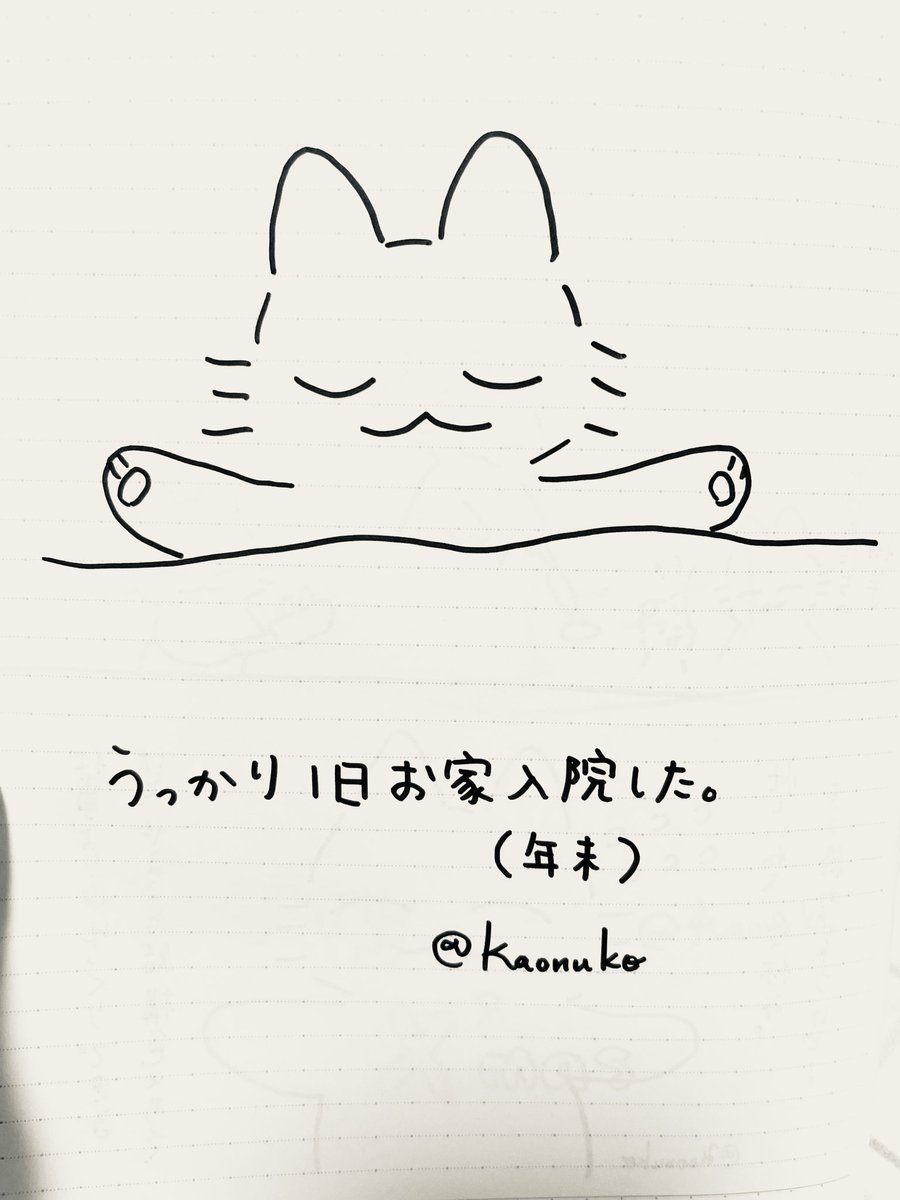 うっかり1日お家入院した。
(年末)
@kaonuko